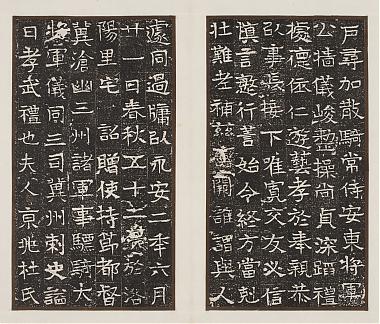 戶尋加散騎常侍安東將軍
公牆儀峻整操尚貞深蹈禮
懷德依仁遊藝孝於奉親恭
以事接下唯寬交友必信
慎言懃行善始令終方當剋
壯難老補茲闕誰謂與人
遽同過牖以永安二年六月
廿一日春秋五十二於洛
陽里宅 詔贈使持節都督
冀滄幽三州諸軍事驃騎大
將軍儀同三司冀州刺史謚
曰孝武禮也夫人京兆杜氏